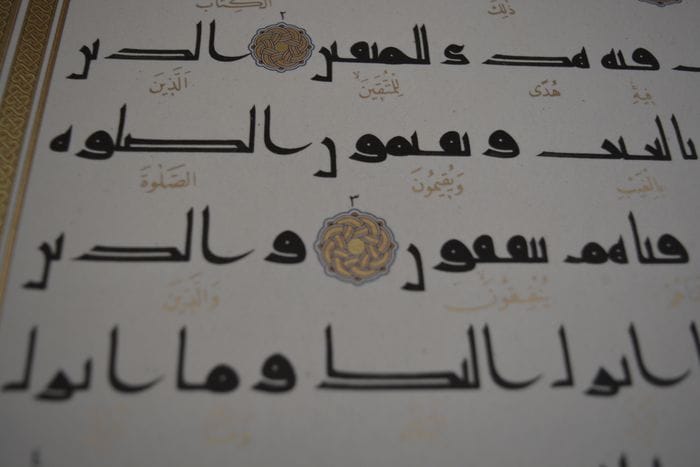 ذٰلِكَ الْكِتَابُ
فيه هدى للمتقين ٢ الذين
فِيهِ هُدًى لِلْمُتَّقِينَ الَّذِينَ
بالغيب و يقيمون الصلوة
بِالْغَيْبِ وَيُقِيمُونَ الصَّلٰوةَ
قناهم ينفقون ٣ و الذين
يُنْفِقُونَ وَالَّذِينَ
انزل اليك و ما انزل